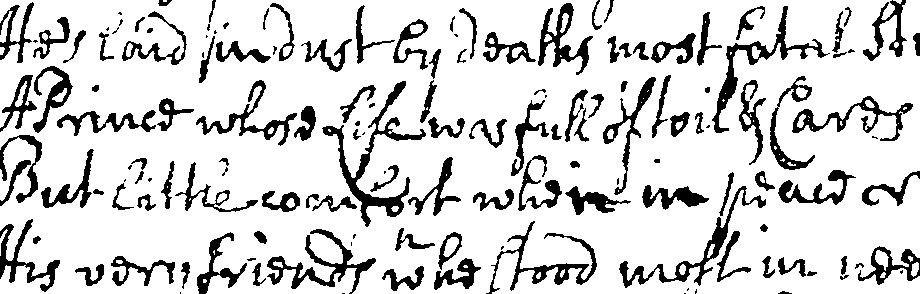 He's laid in dust by deaths most fatal
A Prince whose life was full of toil & Cares
But little comfort when in peace or
His very friends whe stood most in nee